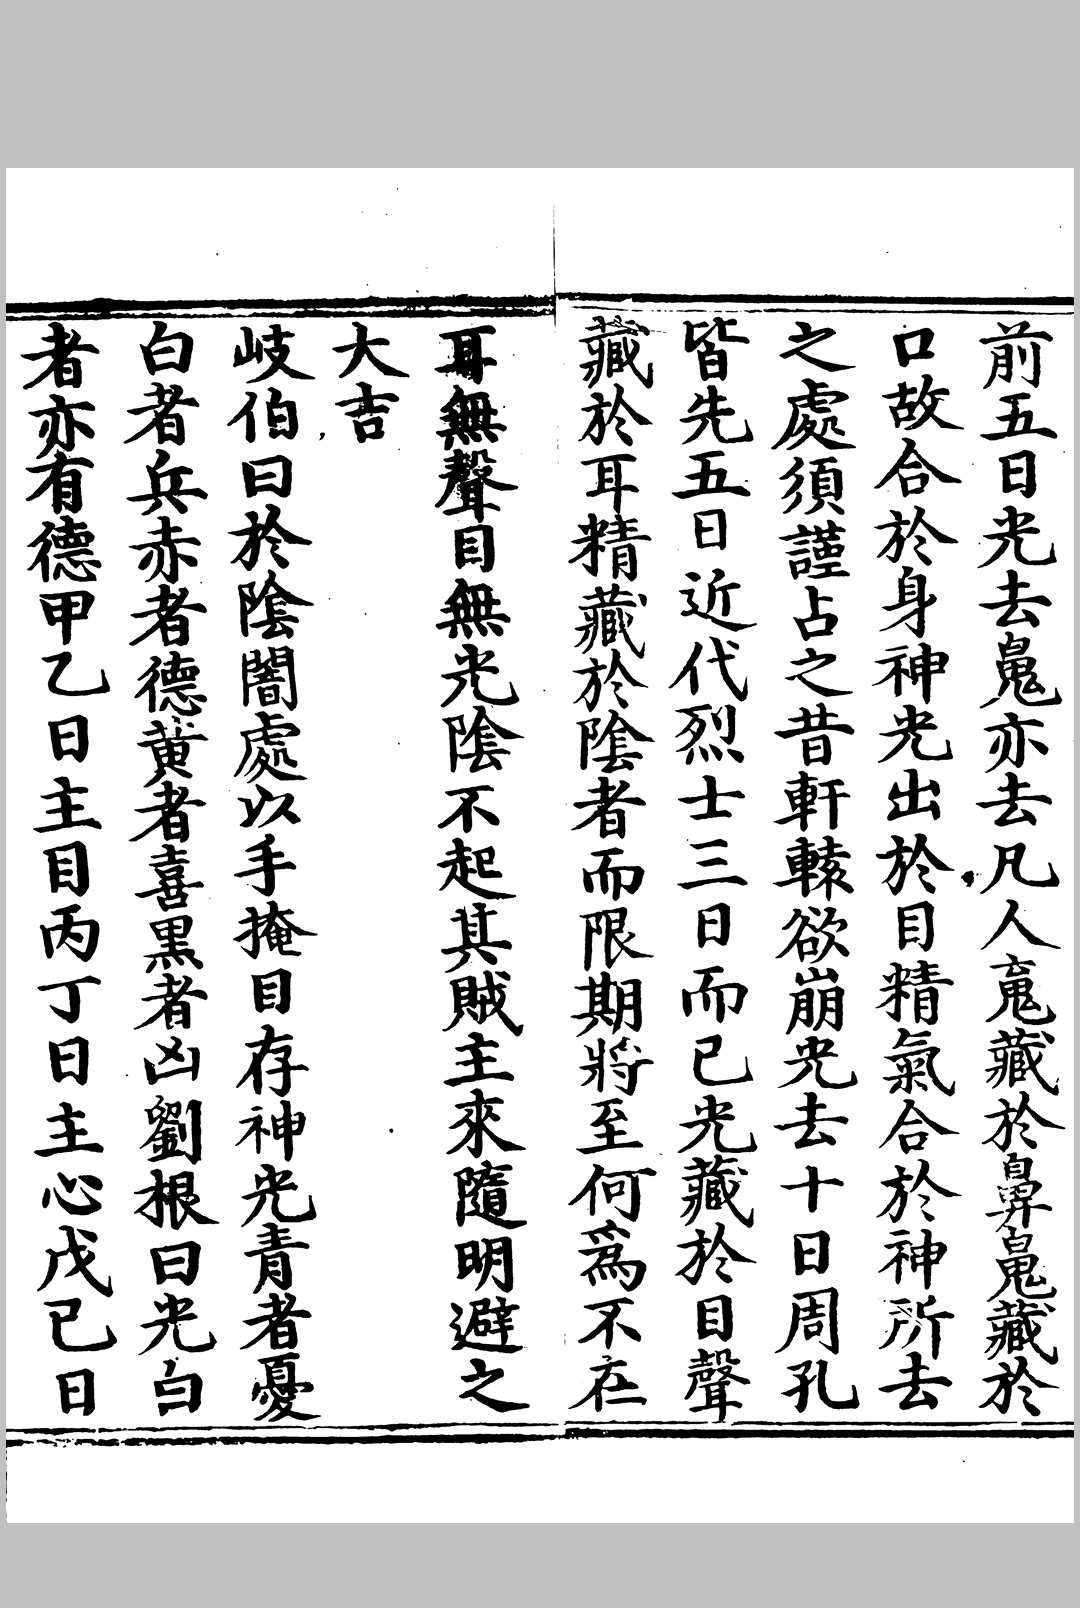 前五日光去鬼亦去凡人䰟藏於鼻鬼藏於
口故合於身神光出於目精氣合於神所去
之處須謹占之昔軒轅欲崩光去十日周孔
皆先五日近代烈士三日而已光藏於目聲
藏於耳精藏於陰者而限期將至何為不在
耳無聲目無光陰不起其賊主來隨明避之
大吉
岐伯曰於陰闇處以手掩目存神光青者憂
白者兵赤者德黃者喜黑者凶劉根曰光白
者亦有德甲乙日主目丙丁日主心戊己日